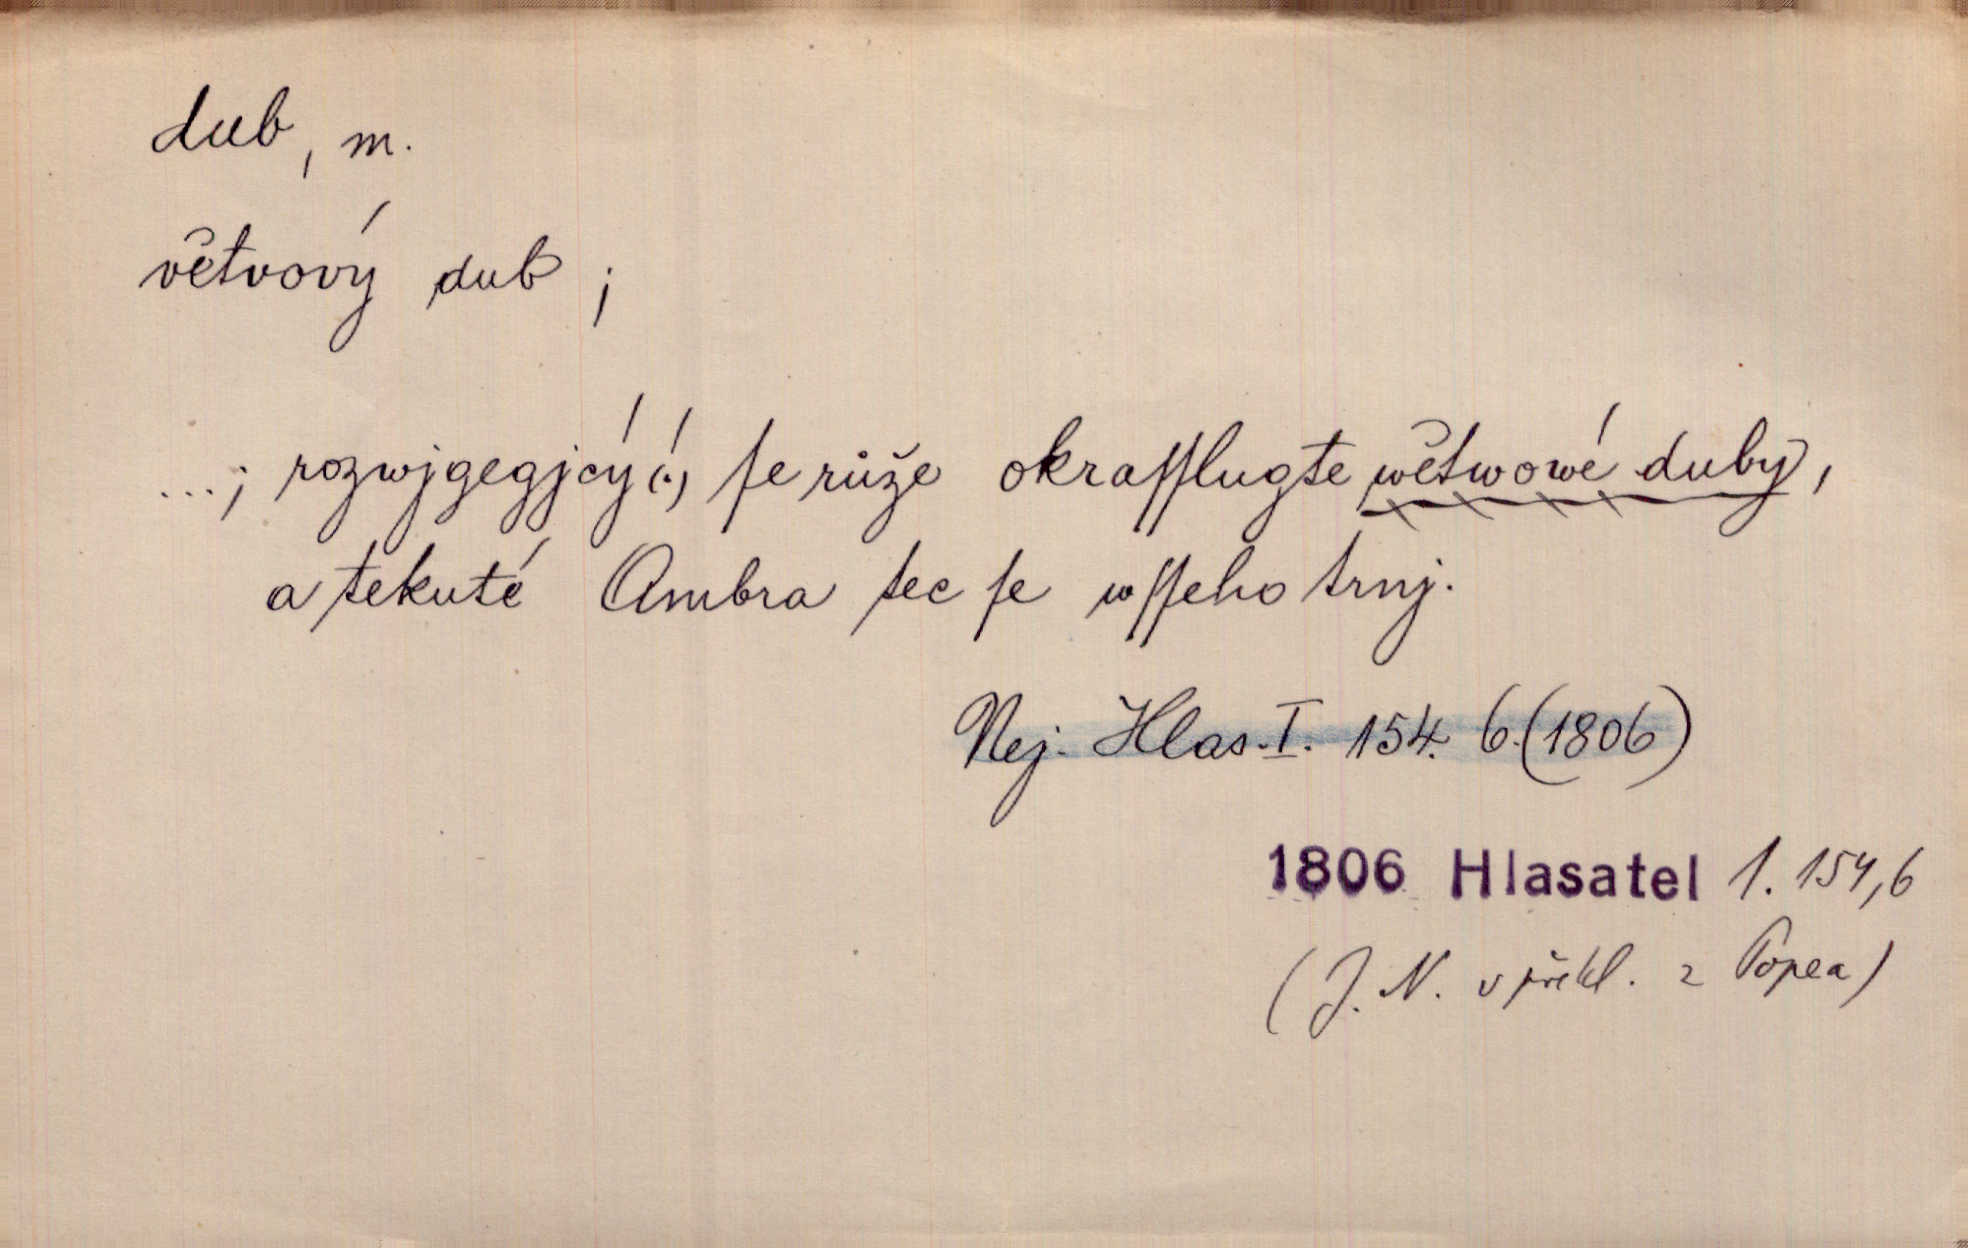 dub, m.
větvový dub;
...; rozwjgegjcý (!) ſe růže okraſſlugte wětwowé duby,
a tekuté Ambra tec ſe wſſeho trnj.
Nej. Hlas. I. 154. 6. (1806)
1806 Hlasatel 1. 154,6
(J. N. v překl. z Popea)